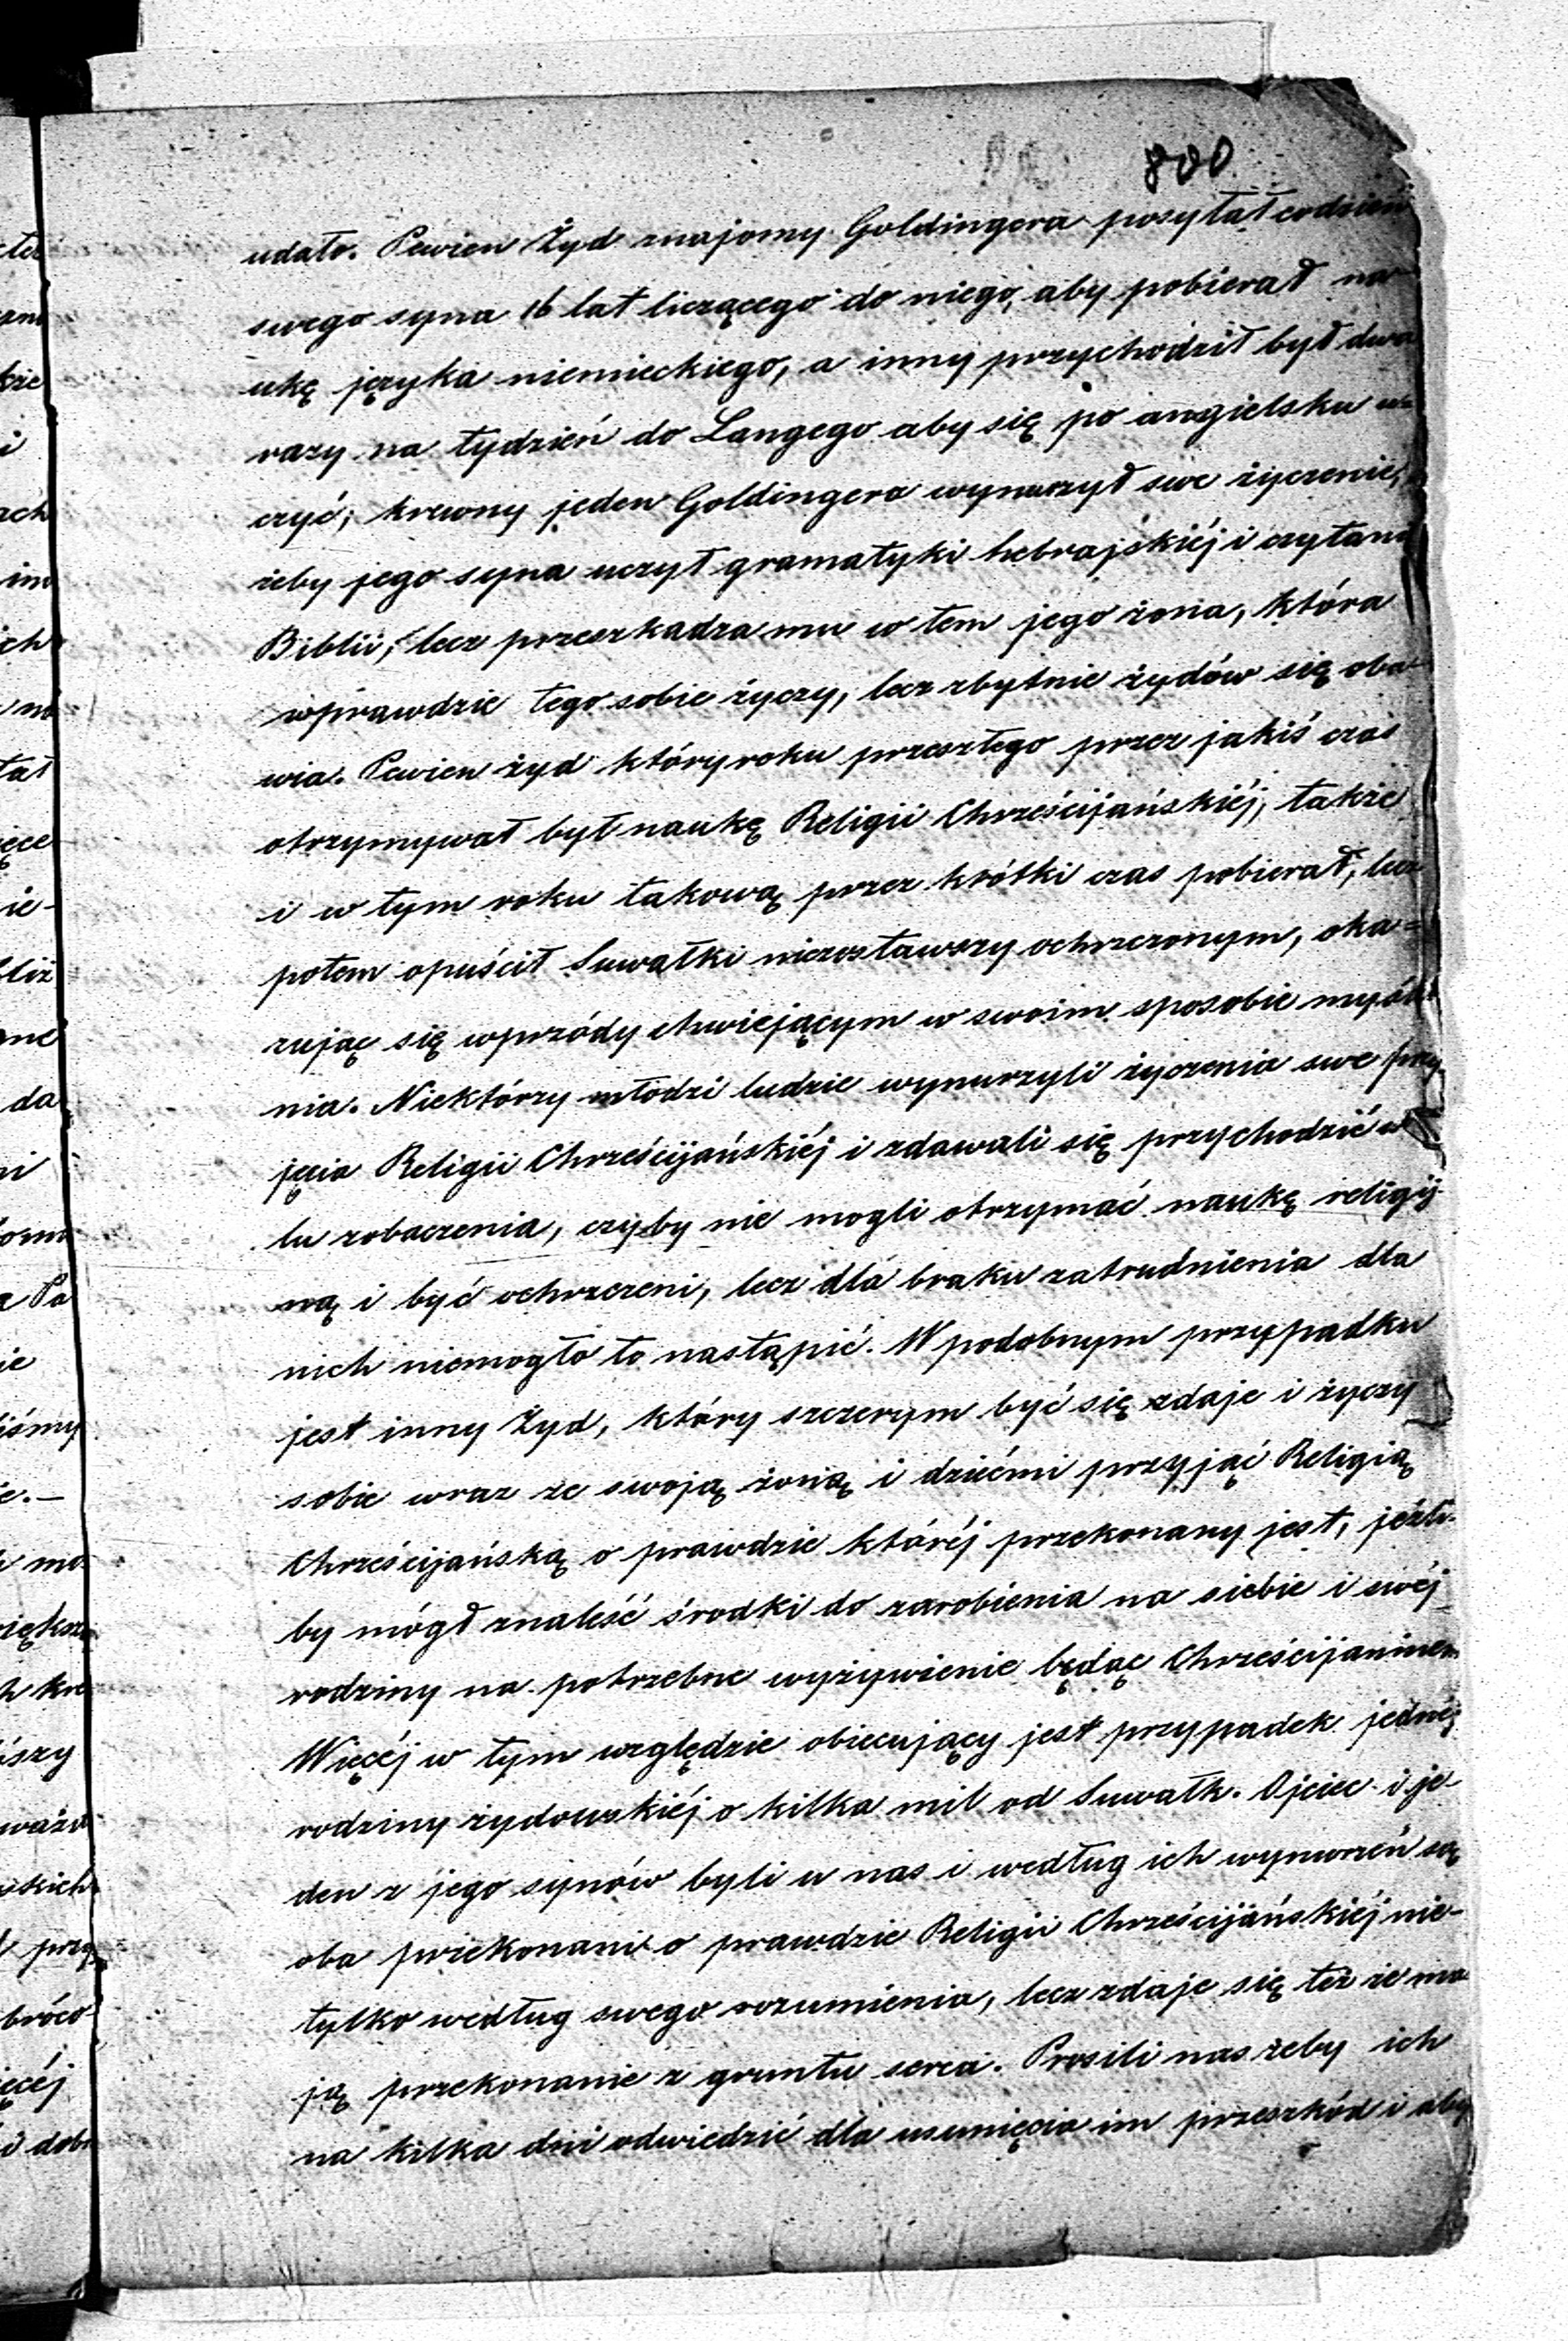 800
udało. Pewien Żyd znajomy Goldingera posyłał codzień
swego syna 16 lat liczącego do niego, aby pobierał na-
ukę języka niemieckiego, a inny przychodził był dwa
razy na tydzień do Langego aby się po angielsku u=
czyć; krewny jeden Goldingera wynurzył swe życzenie,
żeby jego syna uczył gramatyki hebrajskiéj i czytania
Biblii, lecz przeszkadza mu w tem jego żona, która
wprawdzie tego sobie życzy, lecz zbytnie żydów się oba-
wia. Pewien żyd który roku przeszłego przez jakiś czas
otrzymywał był naukę Religii Chrześcijańskiéj, także
i w tym roku takową przez krótki czas pobierał, lecz
potem opuścił Suwałki niezostawszy ochrzczonym, oka=
zując się wprzódy chwiejącym w swoim sposobie myśle
nia. Niektórzy młodzi ludzie wynurzyli życzenia swe przy
jęcia Religii Chrześcijańskiéj i zdawali się przychodzić w
lu zobaczenia, czyby nie mogli otrzymać naukę religij-
ną i być ochrzczeni, lecz dla braku zatrudnienia dla
nich niemogło to nastąpić. W podobnym przypadku
jest inny Żyd, który szczerym być się zdaje i życzy
sobie wraz ze swoją żoną i dziećmi przyjąć Religią
Chrześcijańską o prawdzie któréj przekonany jest, jeżli-
by mógł znaleść środki do zarobienia na siebie i swéj
rodziny na potrzebne wyżywienie będąc Chrześcijaninem
Więcéj w tym względzie obiecujący jest przypadek jednéj
rodziny żydowskiéj o kilka mil od Suwałk. Ojciec i je-
den z jego synów byli u nas i według ich wynurzeń są
oba przekonani o prawdzie Religii Chrześcijańskiéj nie-
tylko według swego rozumienia, lecz zdaje się też że ma
ją przekonanie z gruntu serca. Prosili nas żeby ich
na kilka dni odwiedzić dla usunięcia im przeszkód i aby